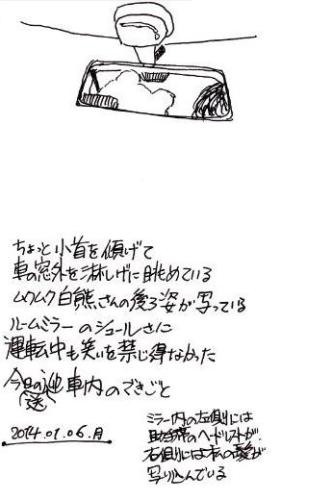 ちょっと小首を傾げて
車の窓外を淋しげに眺めている
ムクムク白熊さんの後ろ姿が写っている
ルームミラーのシュールさに
運転中も笑いを禁じ得なかった
今日の送迎車内のできごと
2014.01.06.月
ミラー内の左側には
助手席のヘッドレストが、
右側には私の髪が
写り込んでいる